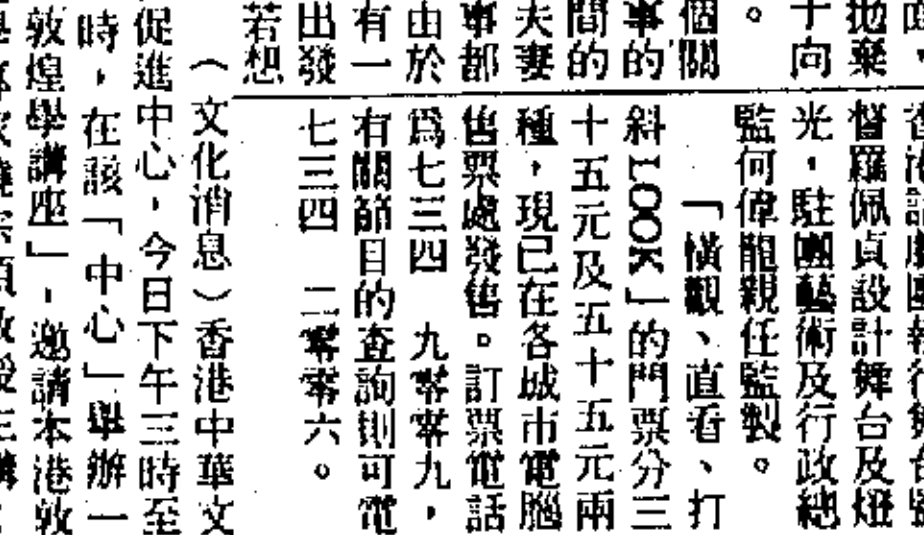 拋棄
向
。
個關
事的
間的
夫妻
事都
由於
有一
出發
若想
督羅佩貞設計舞台及燈
光，駐團藝術及行政總
監何偉龍親任監製。
「橫觀、直看、打
斜LOOK」的門票分三
十五元及五十五元兩
種，現已在各城市電腦
售票處發售。訂票電話
爲七三四 九零零九，
有關節目的查詢則可電
七三四 二零零六。
（文化消息）香港中華文
促進中心，今日下午三時至
時，在該「中心」舉辦一
敦煌學講座」，邀請本港敦